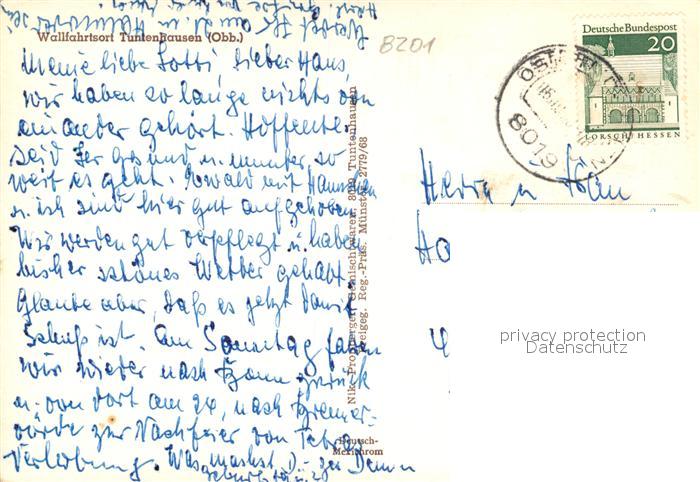 Wallfahrtsort Tuntenhausen (Obb.)
8201
Meine liebe Lotti, lieber Hans,
wir haben so lange nichts von
einander gehört. Hoffentl.
seid Ihr gesund u. munter, so
weit es geht. Ewald mit
u. ich sind hier gut aufgehoben
Wir werden gut verpflegt u. haben
bisher schönes Wetter gehabt.
Glaube aber, daß es jetzt damit
Schluß ist. Am Sonntag fahren
wir wieder nach Bonn zurück
u. von dort am 24. nach Bremer-
vörde zur Nachfeier von
Verlobung. Was machst D
Deutsch-
Mexichrom
Gemischtwaren, 8019 Tuntenhausen
Freigeg. Reg.-Präs. Münster 2779/68
Deutsche Bundespost
20
LORSCH/HESSEN
8019
Herrn u.
Ho
privacy protection
Datenschutz